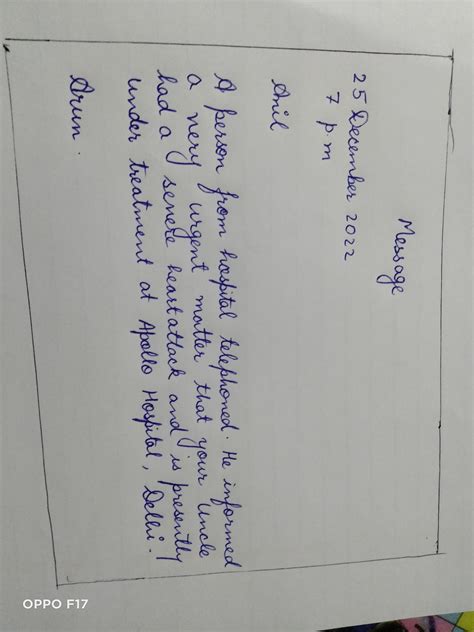 Message
25 December 2022
7 p.m
Anil
A person from hospital telephoned. He informed
a very urgent matter that your uncle
had a severe heart attack and is presently
under treatment at Apollo Hospital, Delhi.
Arun.
OPPO F17